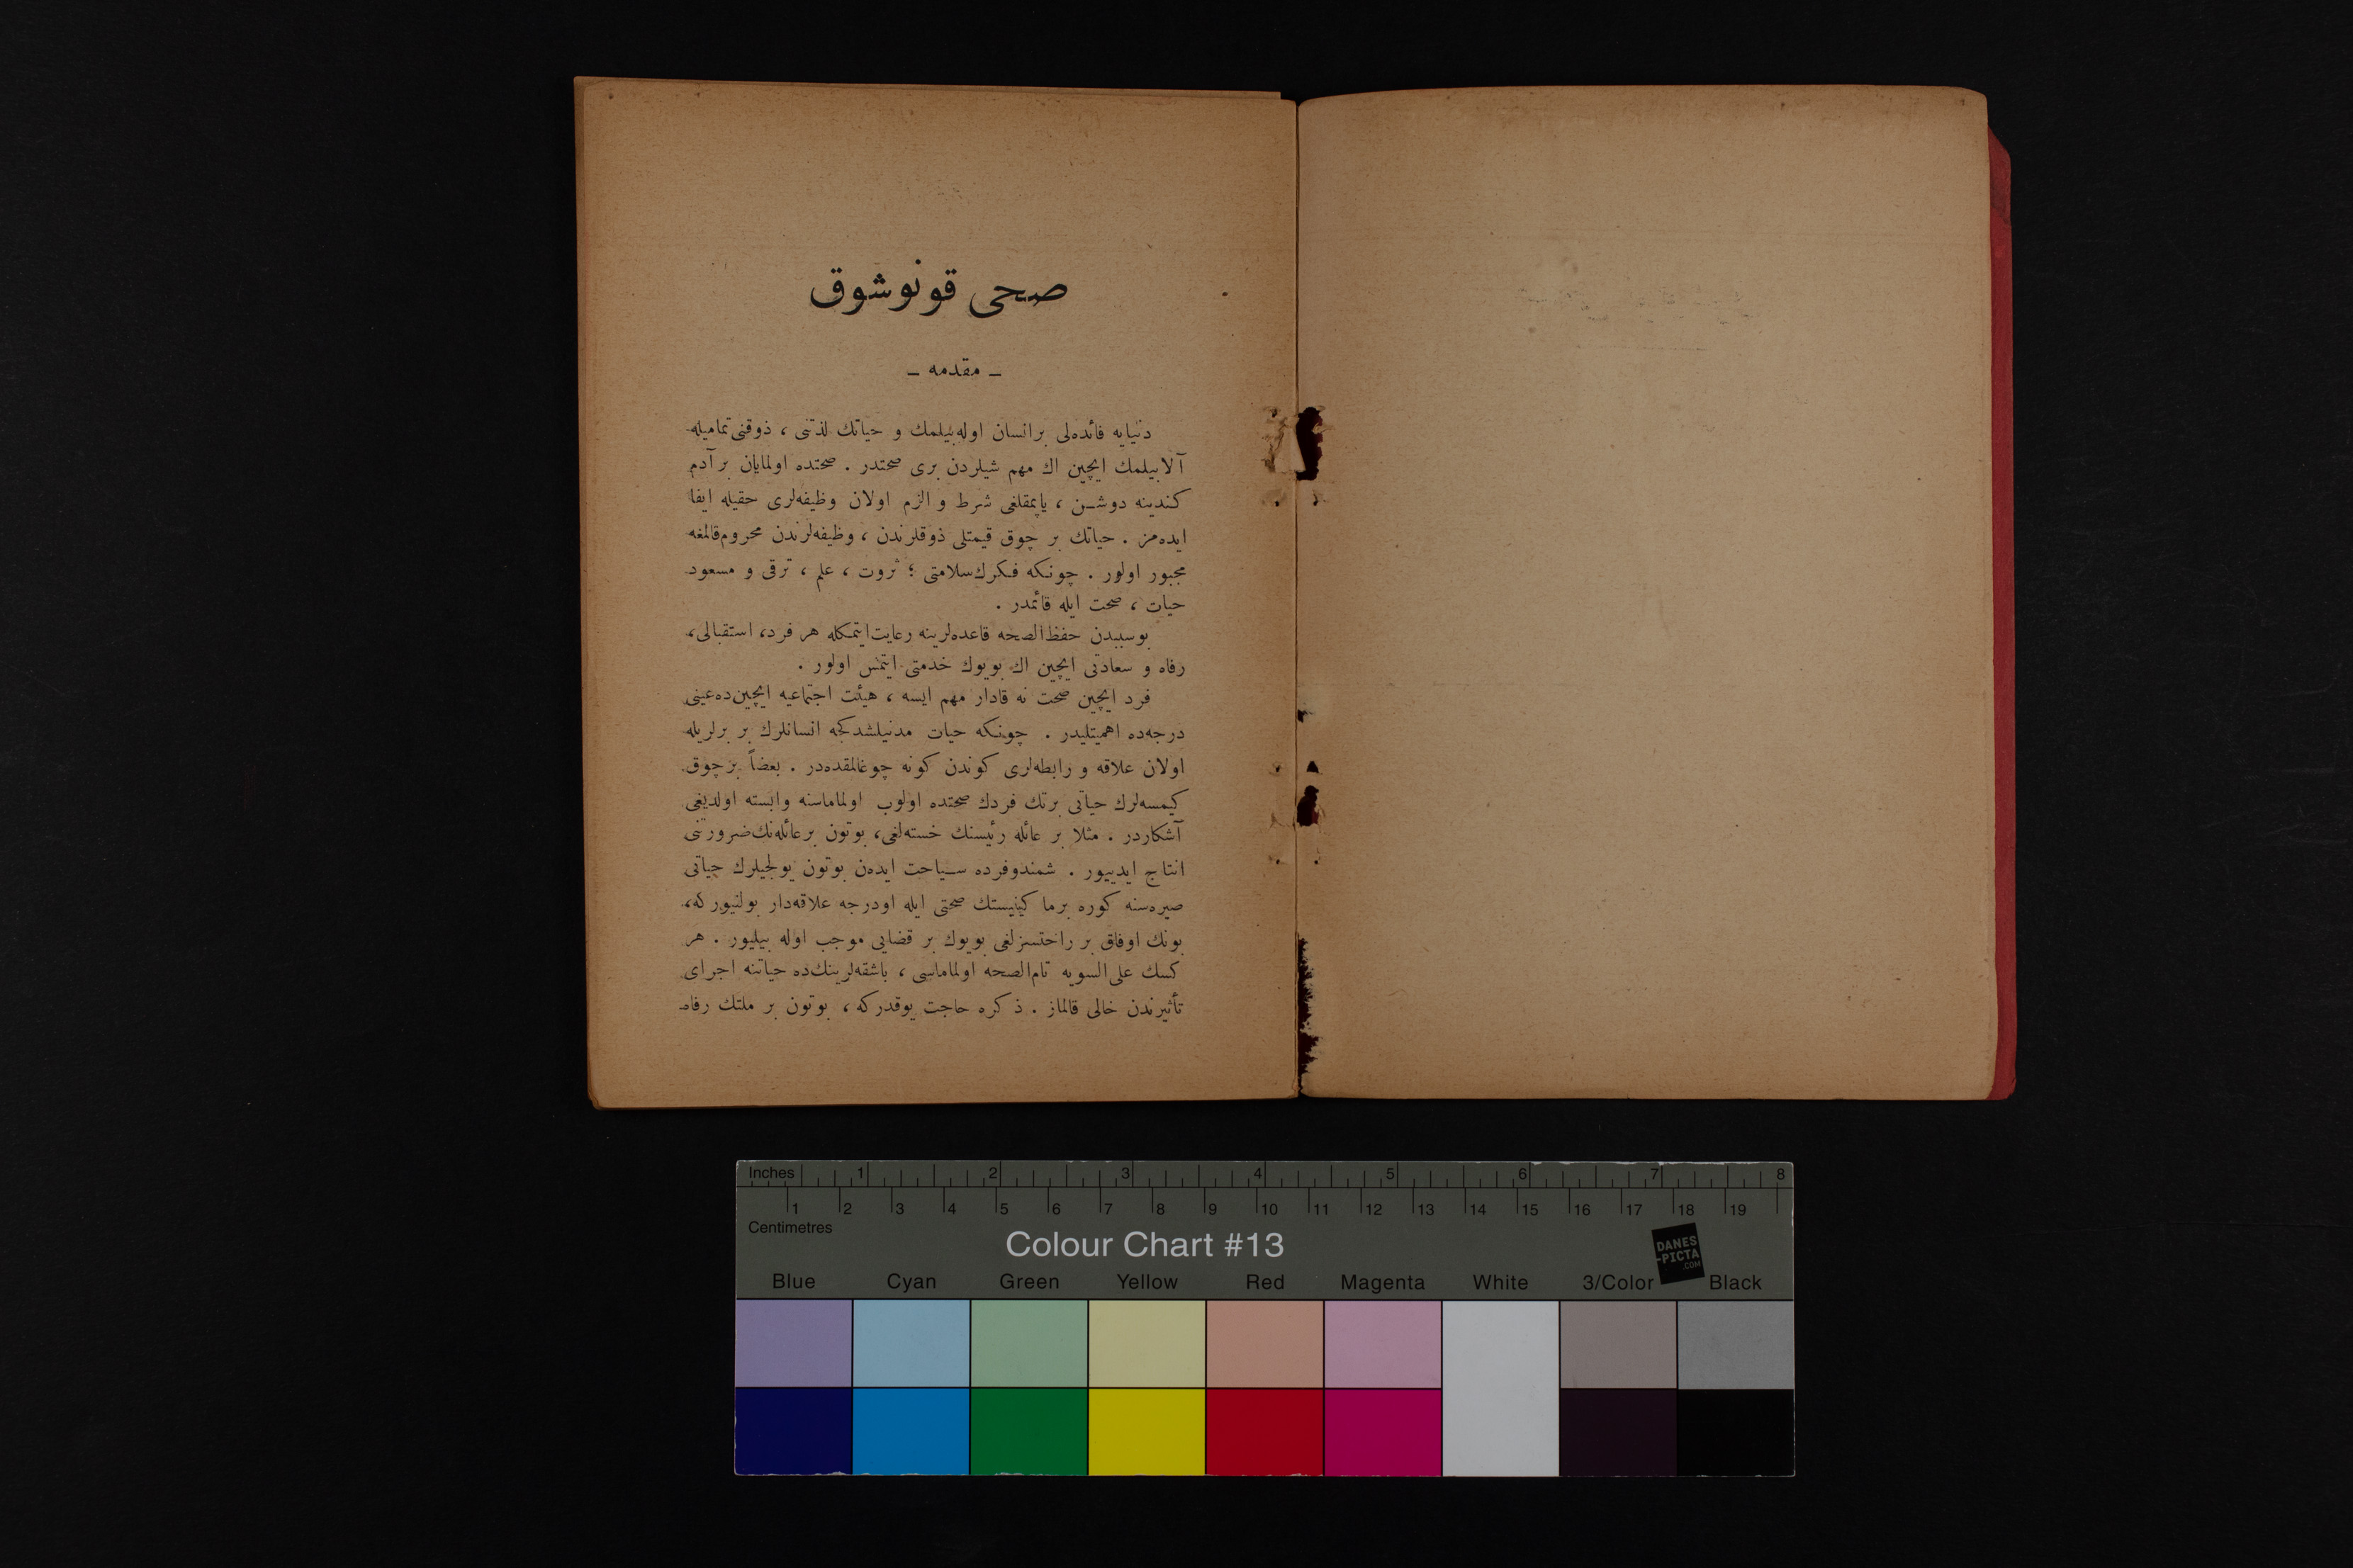 صحی قونوشوق
– مقدمه –
دنیایه فائده‌لی بر انسان اوله‌بیلمك و حیاتك لذتنی ، ذوقنی تمامیله
آلابیلمك ایچین اك مهم شیلردن بری صحتدر . صحتده اولمایان بر آدم
كندینه دوشـن ، یاپمقلغی شرط و الزم اولان وظیفه‌لری حقیله ایفا
ایده‌مز . حیاتك بر چوق قیمتلی ذوقلرندن ، وظیفه‌لرندن محروم قالمغه
مجبور اولور . چونكه فكرك سلامتی ؛ ثروت ، علم ، ترقی و مسعود
حیات ، صحت ایله قائمدر .
بوسببدن حفظ‌الصحه قاعده‌لرینه رعایت‌ایتمكله هر فرد، استقبالی،
رفاه و سعادتی ایچین اك بویوك خدمتی ایتمش اولور .
فرد ایچین صحت نه قادار مهم ایسه ، هیئت اجتماعیه ایچین‌ده عینی
درجه‌ده اهمیتلیدر . چونكه حیات مدنیلشدكجه انسانلرك بر برلریله
اولان علاقه و رابطه‌لری كوندن كونه چوغالمقده‌در . بعضاً بر چوق
كیمسه‌لرك حیاتی برتك فردك صحتده اولوب اولماماسنه وابسته اولدیغی
آشكاردر . مثلا بر عائله رئیسنك خسته‌لغی، بوتون بر عائله‌نك ضرورتنی
انتاج ایدییور . شمندوفرده سـیاحت ایده‌ن بوتون یولجیلرك حیاتی
صیره‌سنه كوره برما كینیستك صحتی ایله اودرجه علاقه‌دار بولنیوركه،
بونك اوفاق بر راحتسزلغی بویوك بر قضایی موجب اوله بیلیور . هر
كسك علی‌السویه تام‌الصحه اولماماسی ، باشقه‌لرینك‌ده حیاتنه اجرای
تأثیرندن خالی قالماز . ذكره حاجت یوقدركه ، بوتون بر ملتك رفاه
Inches 1 2 3 4 5 6 7 8
1 2 3 4 5 6 7 8 9 10 11 12 13 14 15 16 17 18 19
Centimetres
Colour Chart #13
DANES
-PICTA
.COM
Blue Cyan Green Yellow Red Magenta White 3/Color Black